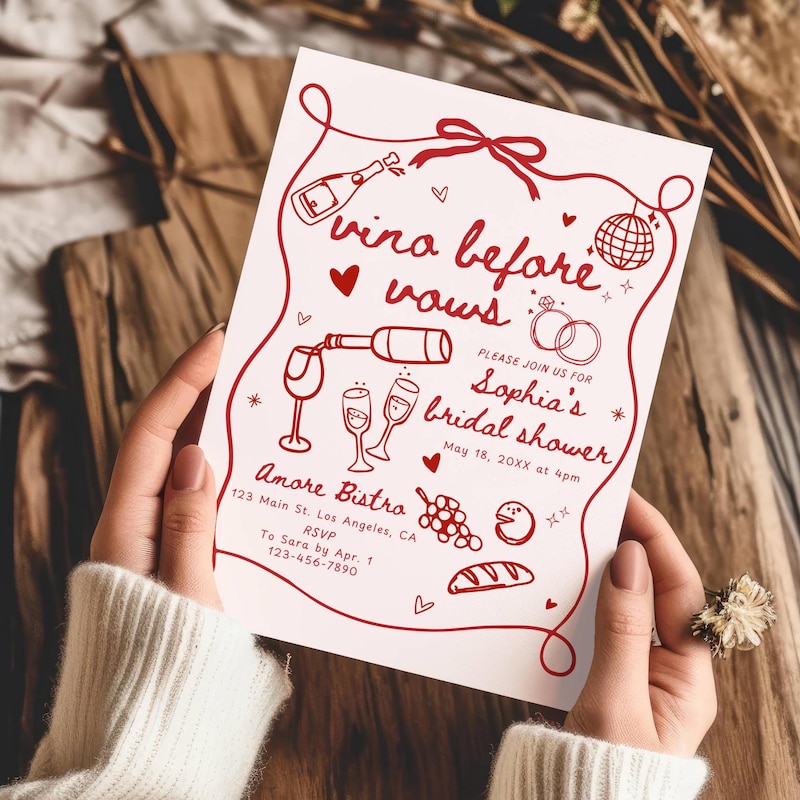 vino before
vows
PLEASE JOIN US FOR
Sophia's
bridal shower
May 18, 20XX at 4pm
Amore Bistro
123 Main St. Los Angeles, CA
RSVP
To Sara by Apr. 1
123-456-7890